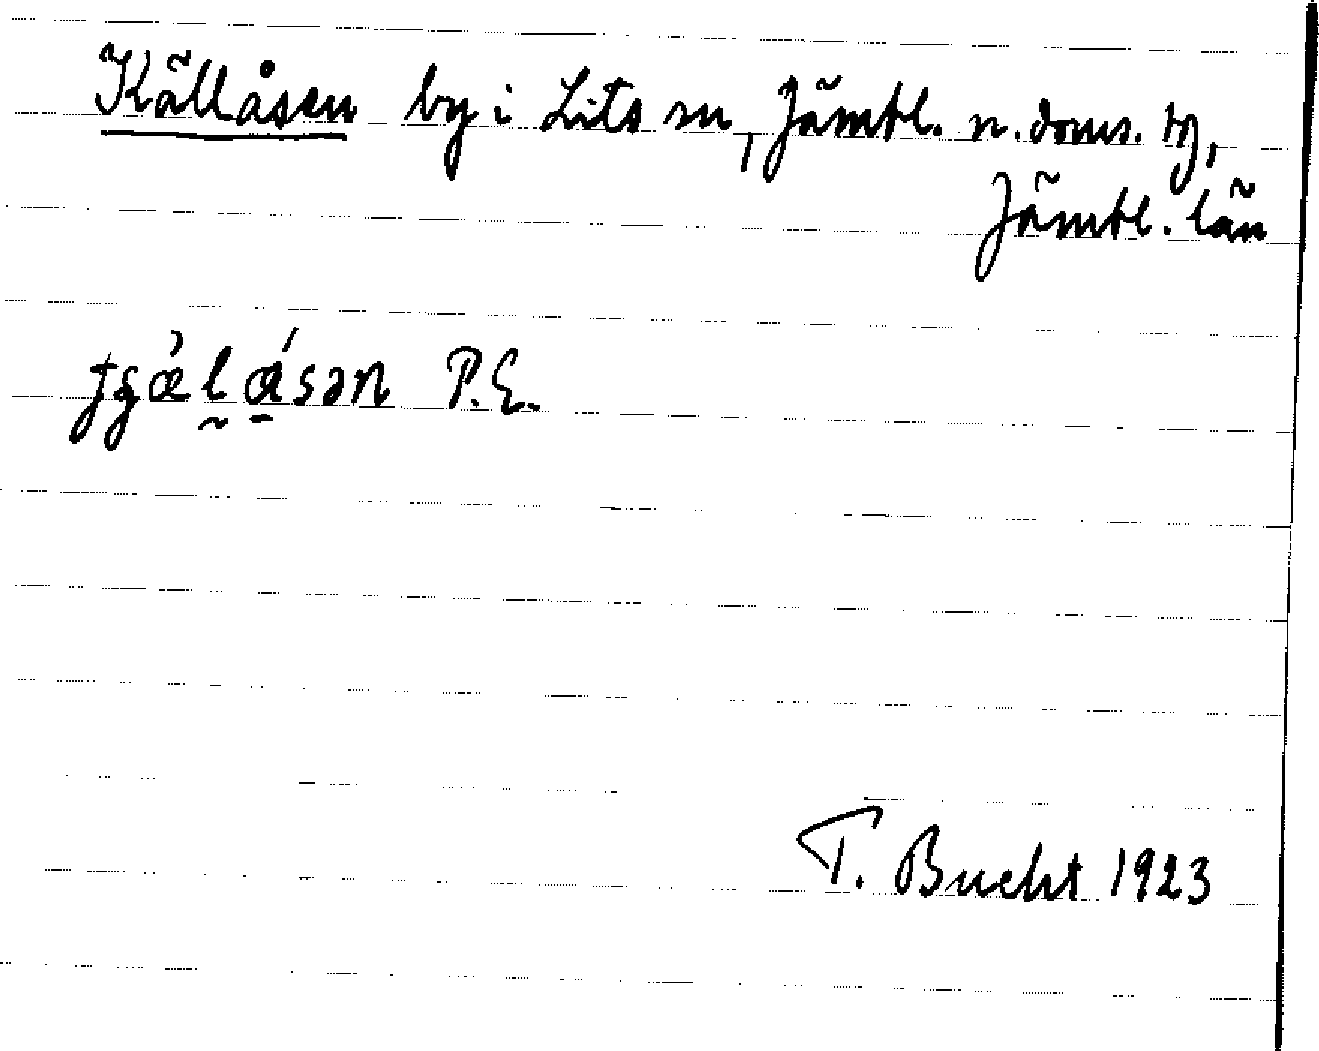 Källåsen by i Lits sn, Jämtl. n. doms. tg,
Jämtl. län
P.E.
T. Bucht 1923